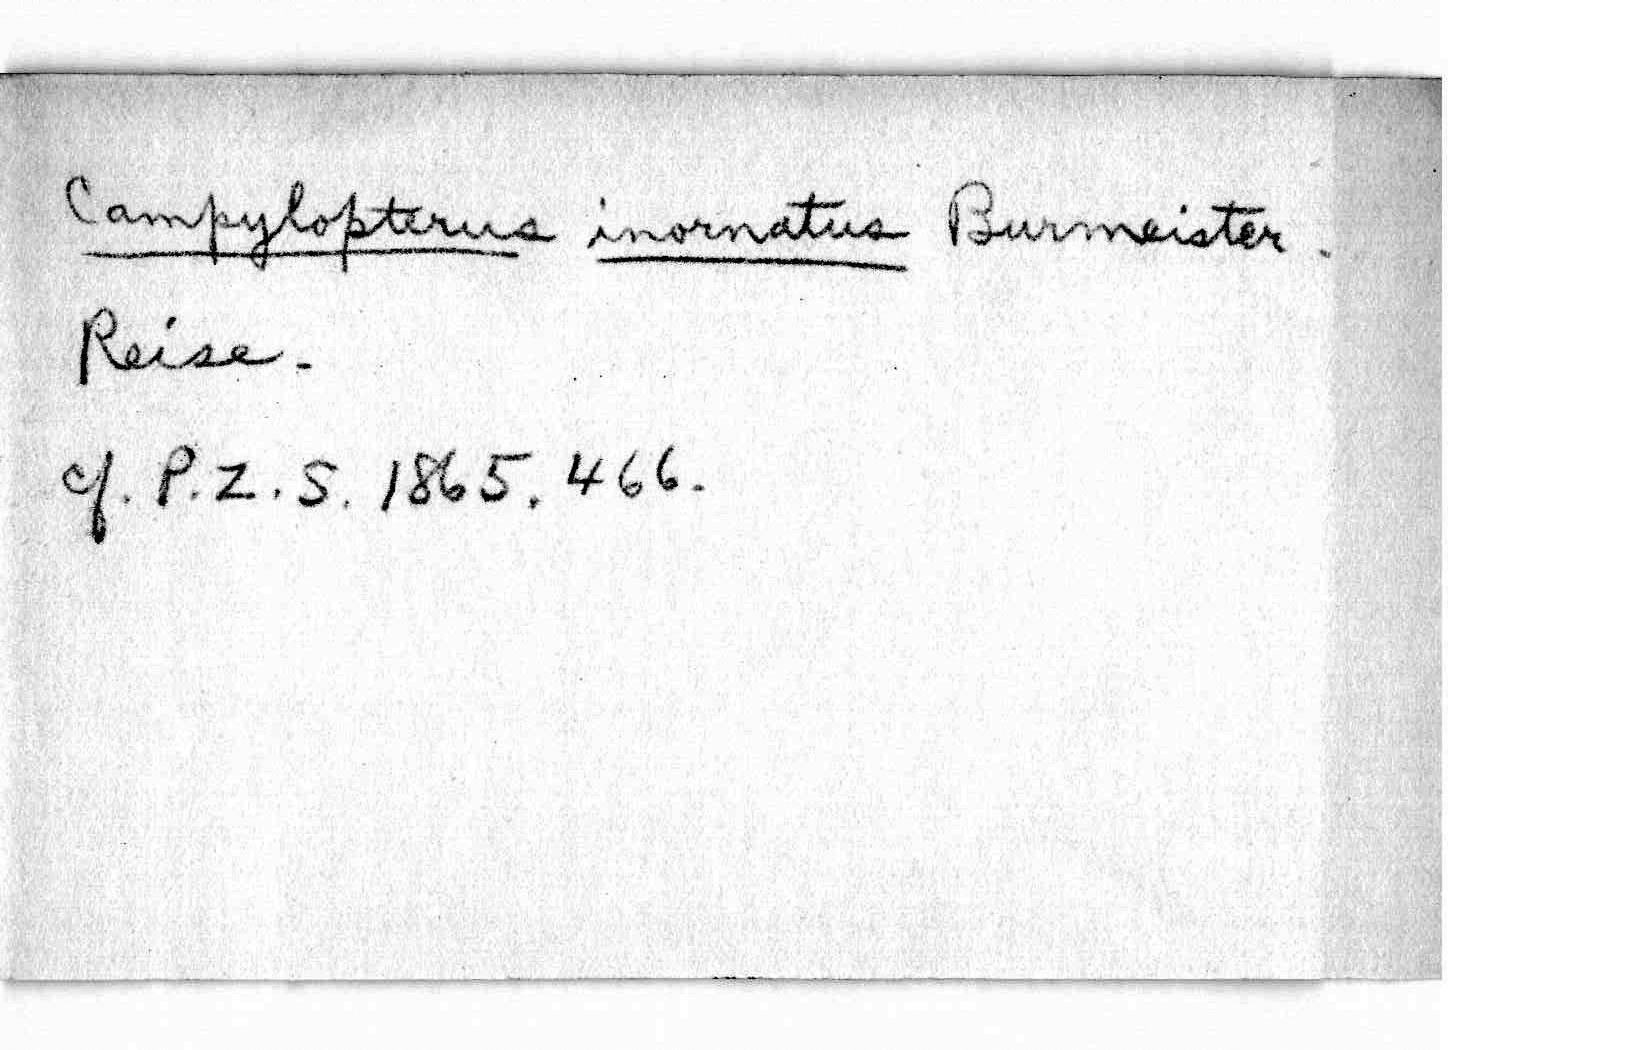 Campylopterus inornatus Burmeister.
Reise.
cf. P.Z.S. 1865, 466.